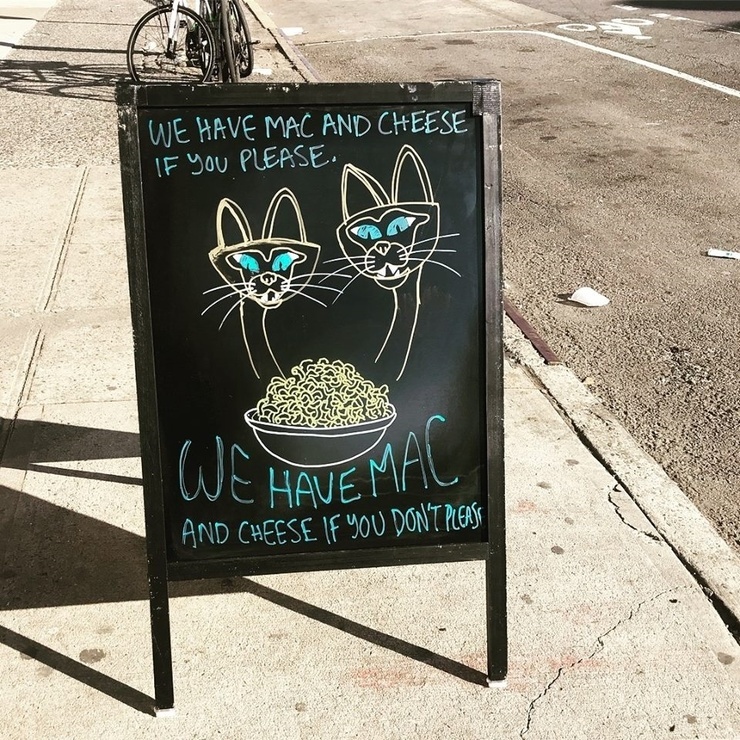 WE HAVE MAC AND CHEESE
IF YOU PLEASE.
WE HAVE MAC
AND CHEESE IF YOU DON'T PLEASE